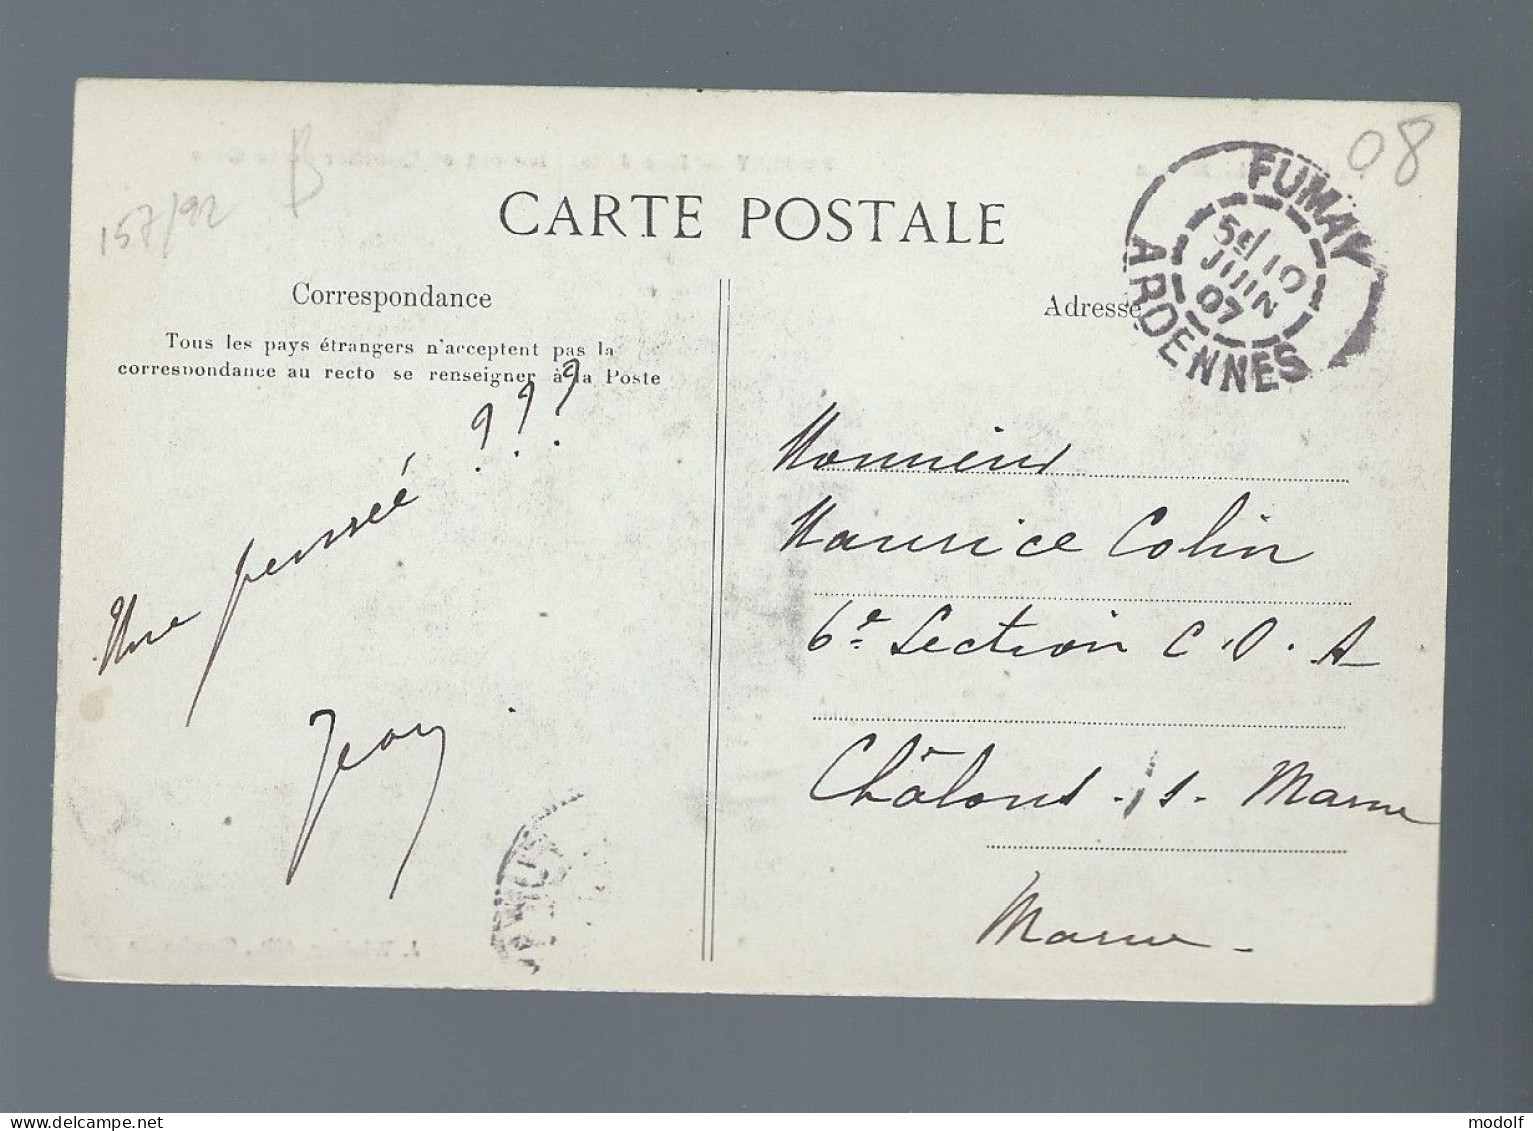 08
B
157/92
CARTE POSTALE
FUMAY
5E/10
JUIN
07
ARDENNES
Correspondance
Adresse
Tous les pays étrangers n'acceptent pas la
correspondance au recto se renseigner à la Poste
Une penseé ???
Jean
Monsieur
Maurice Colin
6e Section C.O.A
Châlons-s-Marne
Marne-
www.delcampe.net
modolf